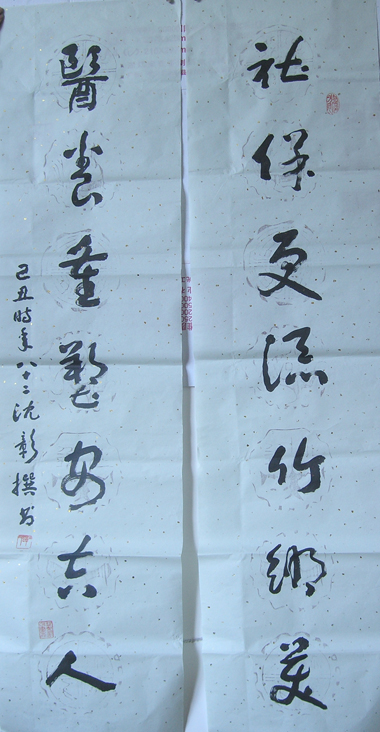 社保更添竹鄉美
醫養重塑安吉人
己丑時年八十二沈彰撰书